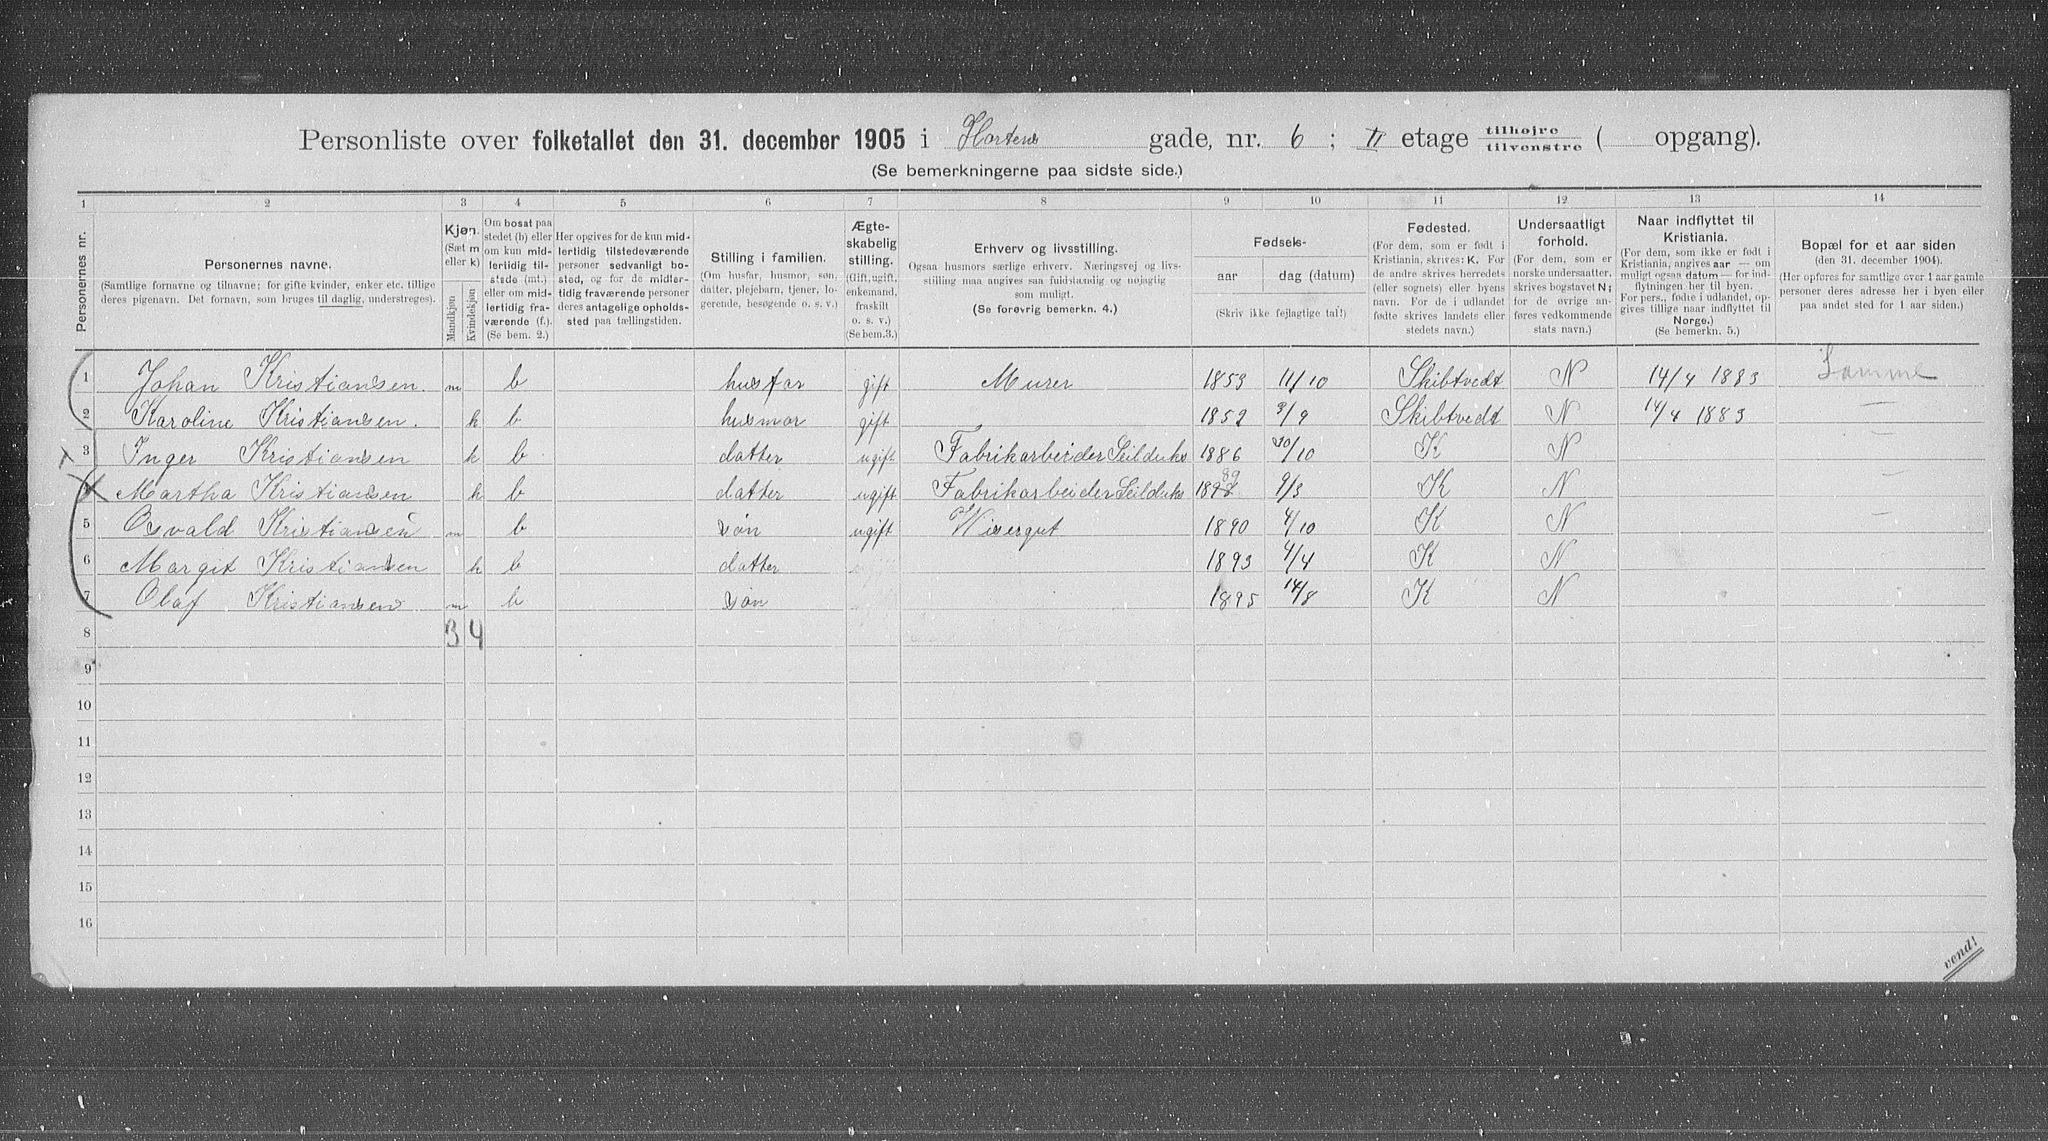 Personliste over folketallet den 31. december 1905 i Hortens gade, nr. 6; II etage tilhøjre tilvenstre ( opgang).
(Se bemerkningerne paa sidste side.)
1 2 3 4 5 6 7 8 9 10 11 12 13 14
Personernes nr.
Personernes navne.
(Samtlige fornavne og tilnavne; for gifte kvinder, enker etc. tillige
deres pigenavn. Det fornavn, som bruges til daglig, understreges).
Kjøn.
(Sæt m
eller k)
Mandkjøn
Kvindekjøn
Om bosat paa
stedet (b) eller
om kun mid-
lertidig til-
stede (mt.)
eller om mid-
lertidig fra-
værende (f.).
(Se bem. 2.)
Her opgives for de kun mid-
lertidig tilstedeværende
personer sedvanligt bo-
sted, og for de midler-
tidig fraværende personer
deres antagelige opholds-
sted paa tællingstiden.
Stilling i familien.
(Om husfar, husmor, søn,
datter, plejebarn, tjener, lo-
gerende, besøgende o. s. v.)
Ægte-
skabelig
stilling.
(Gift, ugift,
enkemand,
fraskilt
o. s. v.)
(Se bem. 3.)
Erhverv og livsstilling.
Ogsaa husmors særlige erhverv. Næringsvej og livs-
stilling maa angives saa fuldstændig og nøjagtig
som muligt.
(Se forøvrig bemerkn. 4.)
Fødsels-
aar dag (datum)
(Skriv ikke fejlagtige tal!)
Fødested.
(For dem, som er født i
Kristiania, skrives: K. For
de andre skrives herredets
(eller sognets) eller byens
navn. For de i udlandet
fødte skrives landets eller
stedets navn.)
Undersaatligt
forhold.
(For dem, som er
norske undersaatter,
skrives bogstavet N;
for de øvrige an-
føres vedkommende
stats navn.)
Naar indflyttet til
Kristiania.
(For dem, som ikke er født i
Kristiania, angives aar — om
muligt ogsaa datum — for ind-
flytningen her til byen.
For pers., fødte i udlandet, op-
gives tillige naar indflyttet til
Norge.)
(Se bemerkn. 5.)
Bopæl for et aar siden
(den 31. december 1904).
(Her opføres for samtlige over 1 aar gamle
personer deres adresse her i byen eller
paa andet sted for 1 aar siden.)
1 Johan Kristiansen. m b husfar gift Murer 1853 11/10 Skibtvedt N 14/4 1883 Samme
2 Karoline Kristiansen. k b husmor gift 1852 3/9 Skibtvedt N 14/4 1883 —
3 Inger Kristiansen k b datter ugift Fabrikarbeider Seilduks 1886 20/10 K N —
4 Martha Kristiansen k b datter ugift Fabrikarbeider Seilduks 1889 9/3 K N —
5 Osvald Kristiansen m b søn ugift Visergut 1890 4/10 K N —
6 Margit Kristiansen k b datter 1893 4/4 K N
7 Olaf Kristiansen m b søn 1895 14/8 K N
8 3 4
9
10
11
12
13
14
15
16
vend!